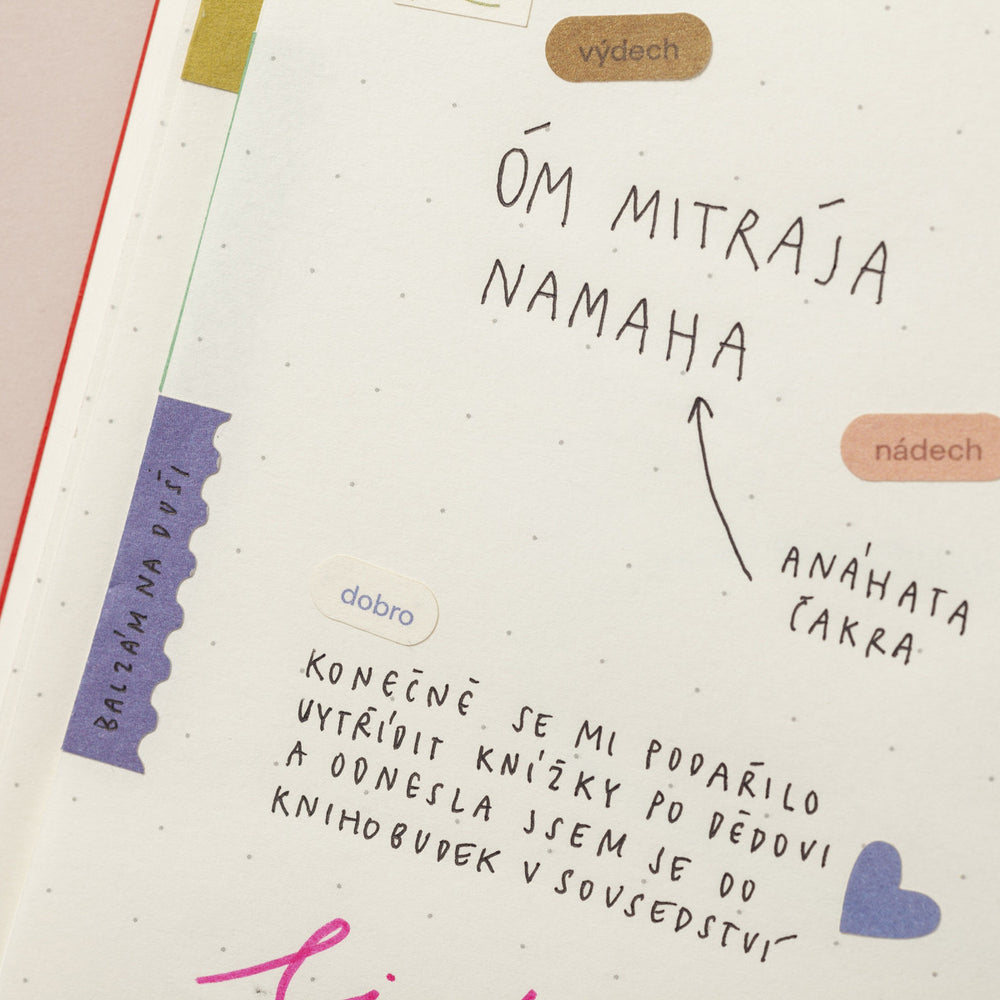 výdech
ÓM MITRÁJA
NAMAHA
nádech
ANÁHATA
ČAKRA
BALZÁM NA DUŠI
dobro
KONEČNĚ SE MI PODAŘILO
VYTŘÍDIT KNÍŽKY PO DĚDOVI
A ODNESLA JSEM JE DO
KNIHOBUDEK V SOUSEDSTVÍ